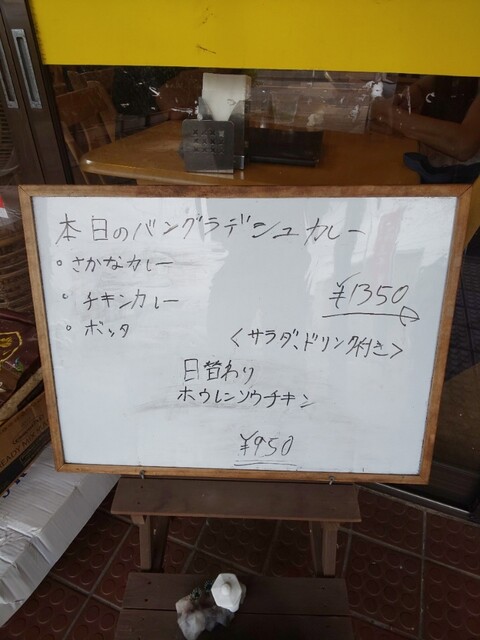 本日のバングラデシュカレー
・さかなカレー
・チキンカレー
・ボッタ
¥1350
<サラダ、ドリンク付き>
日替わり
ホウレンソウチキン
¥950